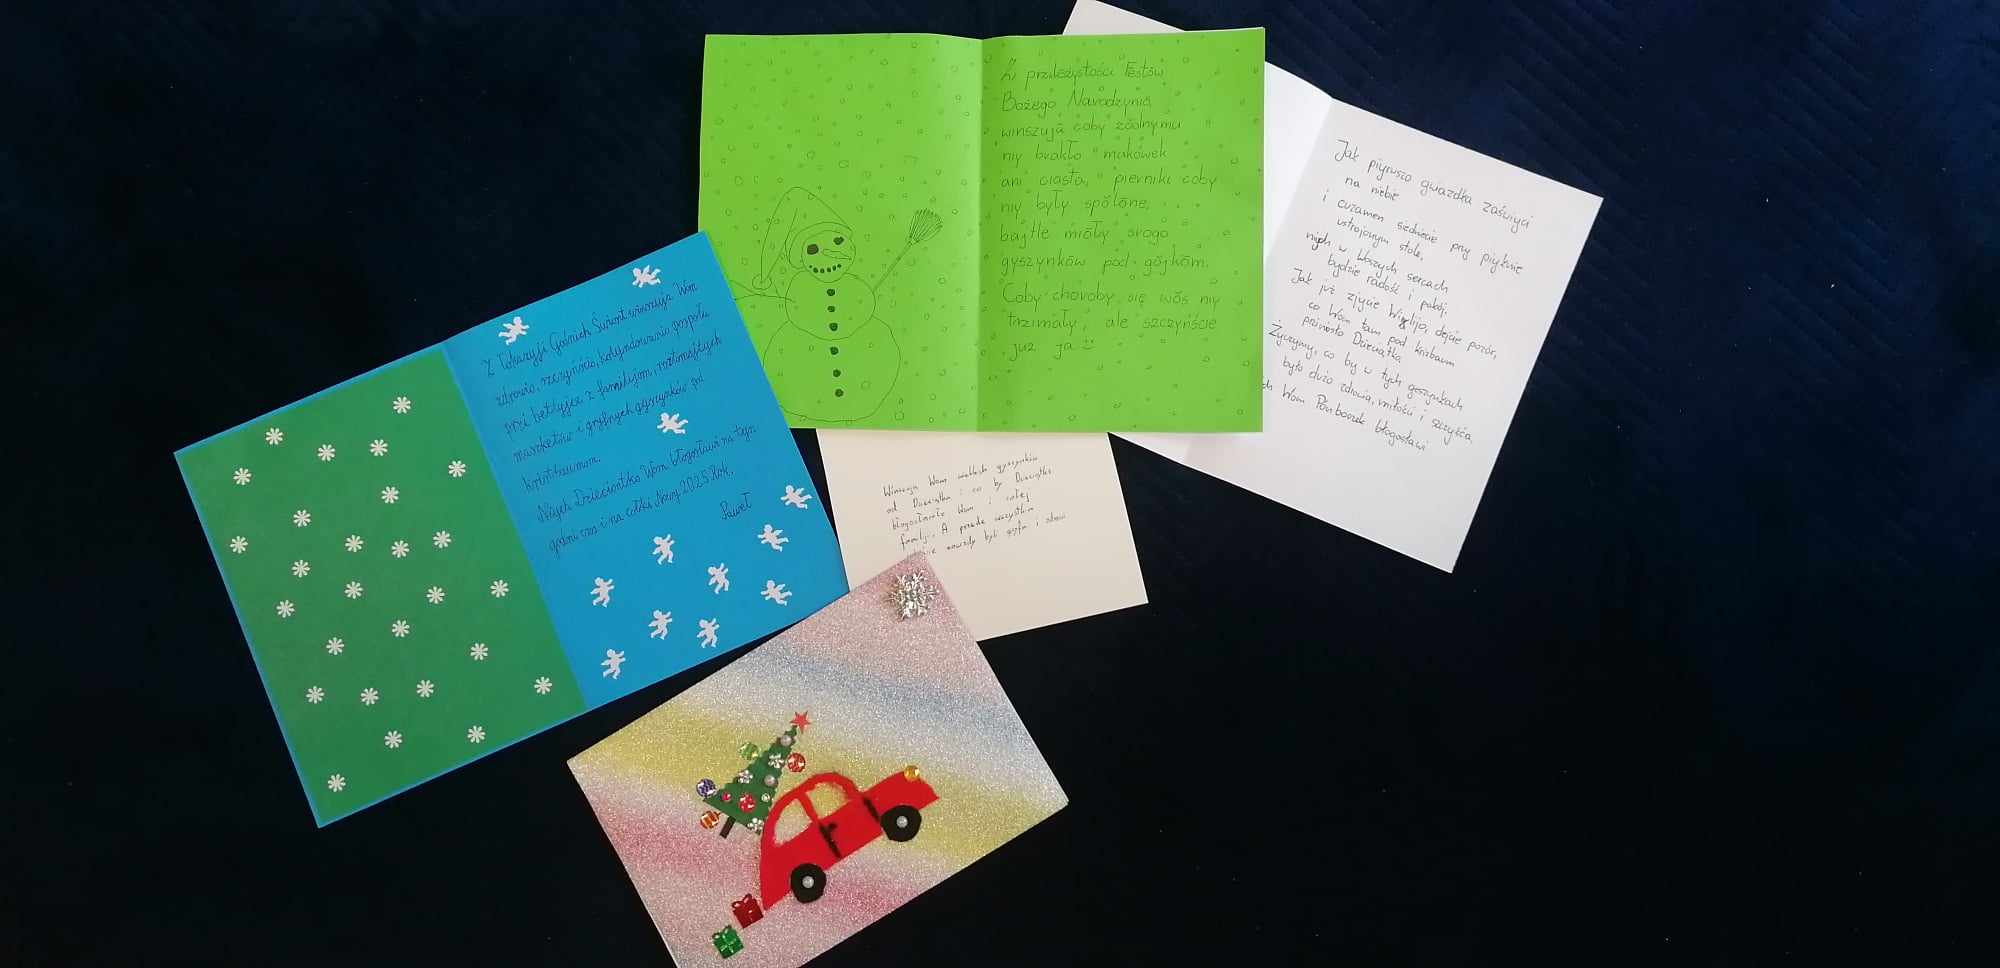 Z przileżytości Festōw
Bożego Narodzynio
winszujã coby żŏdnymu
niy brakło makówek
ani ciasta, pierniki coby
niy były spŏlōne,
bajtle miały srogo
gyszynkōw pod gōjkōm.
Coby choroby się wŏs niy
trzimały, ale szczyńście
już ja
Jak piyrszo gwiazdka zaświyci
na niebie
i cuzamen siedniecie przy piyknie
ustrojonym stole,
niych w Waszych sercach
bydzie radość i pokój.
Jak już zjycie Wilijo, dejcie pozór,
co Wom tam pod krizbaum
prziniosło Dzieciątko
Życzymy, co by w tych geszynkach
było dużo zdrowia, miłości i szczyńścia
Wom Pōnboczek błogosławi
Z łokazyji Gōdnich Świōnt winszuja Wōm
zdrowio, szczyńścio, kolyndowanio pospołu
przi betlyjce z familijōm, roztomajtych
maszketōw i gryfnych gyszynkōw pod
kristbaumym.
Niych Dzieciōntko Wōm błogosławi na tyn
gōdni czas i na cołki Nowy 2025 Rok.
Paweł
Winszuja Wom wielack gyszynków
od Dzieciątka i co by Dzieciątko
błogosławiło Wom i całej
familiji. A przede wszystkim
zawsze byli gryfni i zdrowi